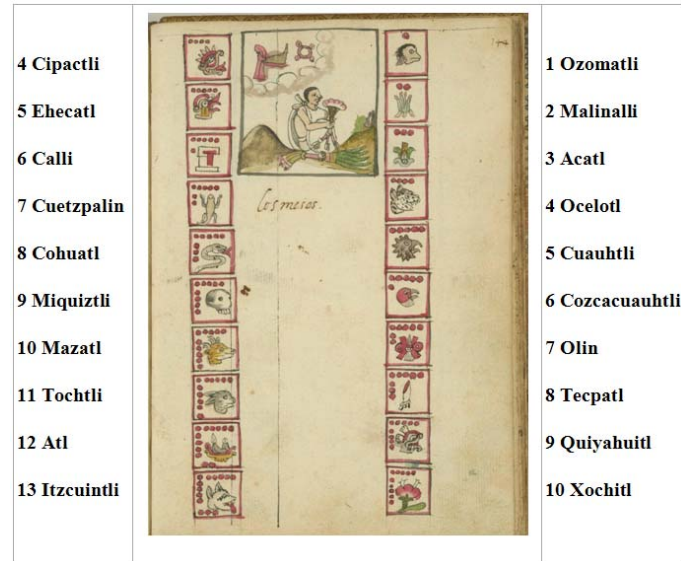 4 Cipactli
5 Ehecatl
6 Calli
7 Cuetzpalin
8 Cohuatl
9 Miquiztli
10 Mazatl
11 Tochtli
12 Atl
13 Itzcuintli
los meses.
1 Ozomatli
2 Malinalli
3 Acatl
4 Ocelotl
5 Cuauhtli
6 Cozcacuauhtli
7 Olin
8 Tecpatl
9 Quiyahuitl
10 Xochitl